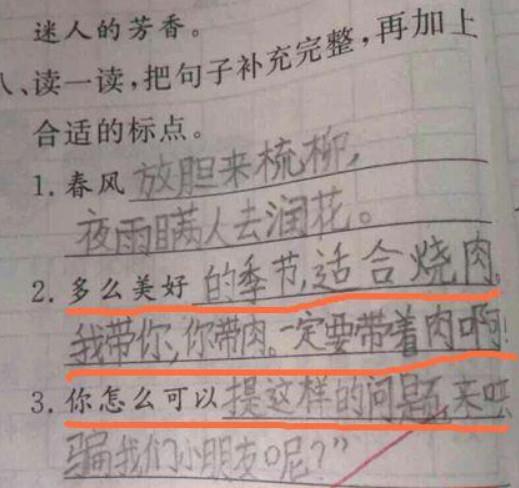 迷人的芳香。
八、读一读,把句子补充完整,再加上
合适的标点。
1. 春风放胆来梳柳,
夜雨瞒人去润花。
2. 多么美好的季节,适合烧肉。
我带你,你带肉。一定要带着肉啊!
3. 你怎么可以提这样的问题来哄
骗我们小朋友呢?”